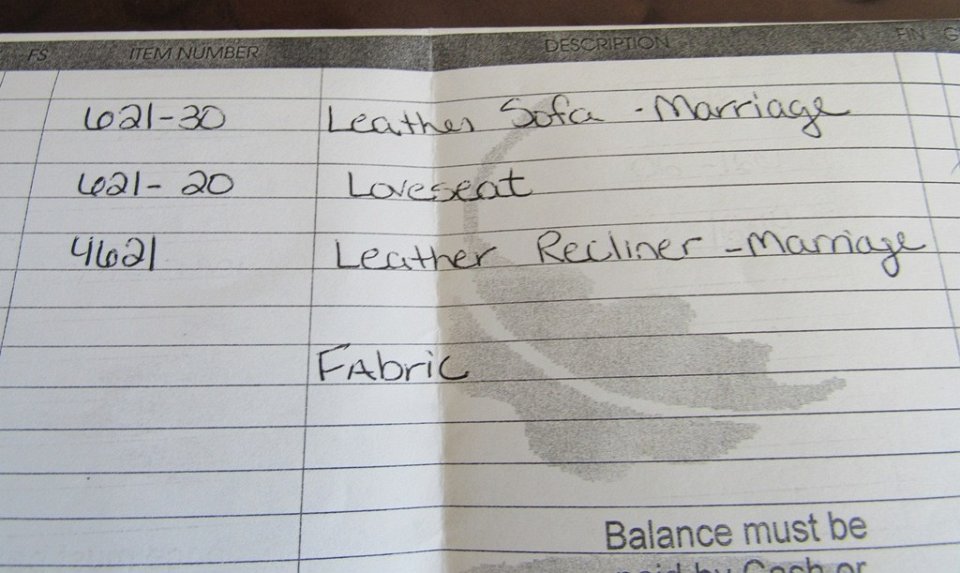 FS ITEM NUMBER DESCRIPTION FIN G
621-30 Leather Sofa - Marriage
621- 20 Loveseat
4621 Leather Recliner - Marriage
Fabric
Balance must be
paid by Cash or